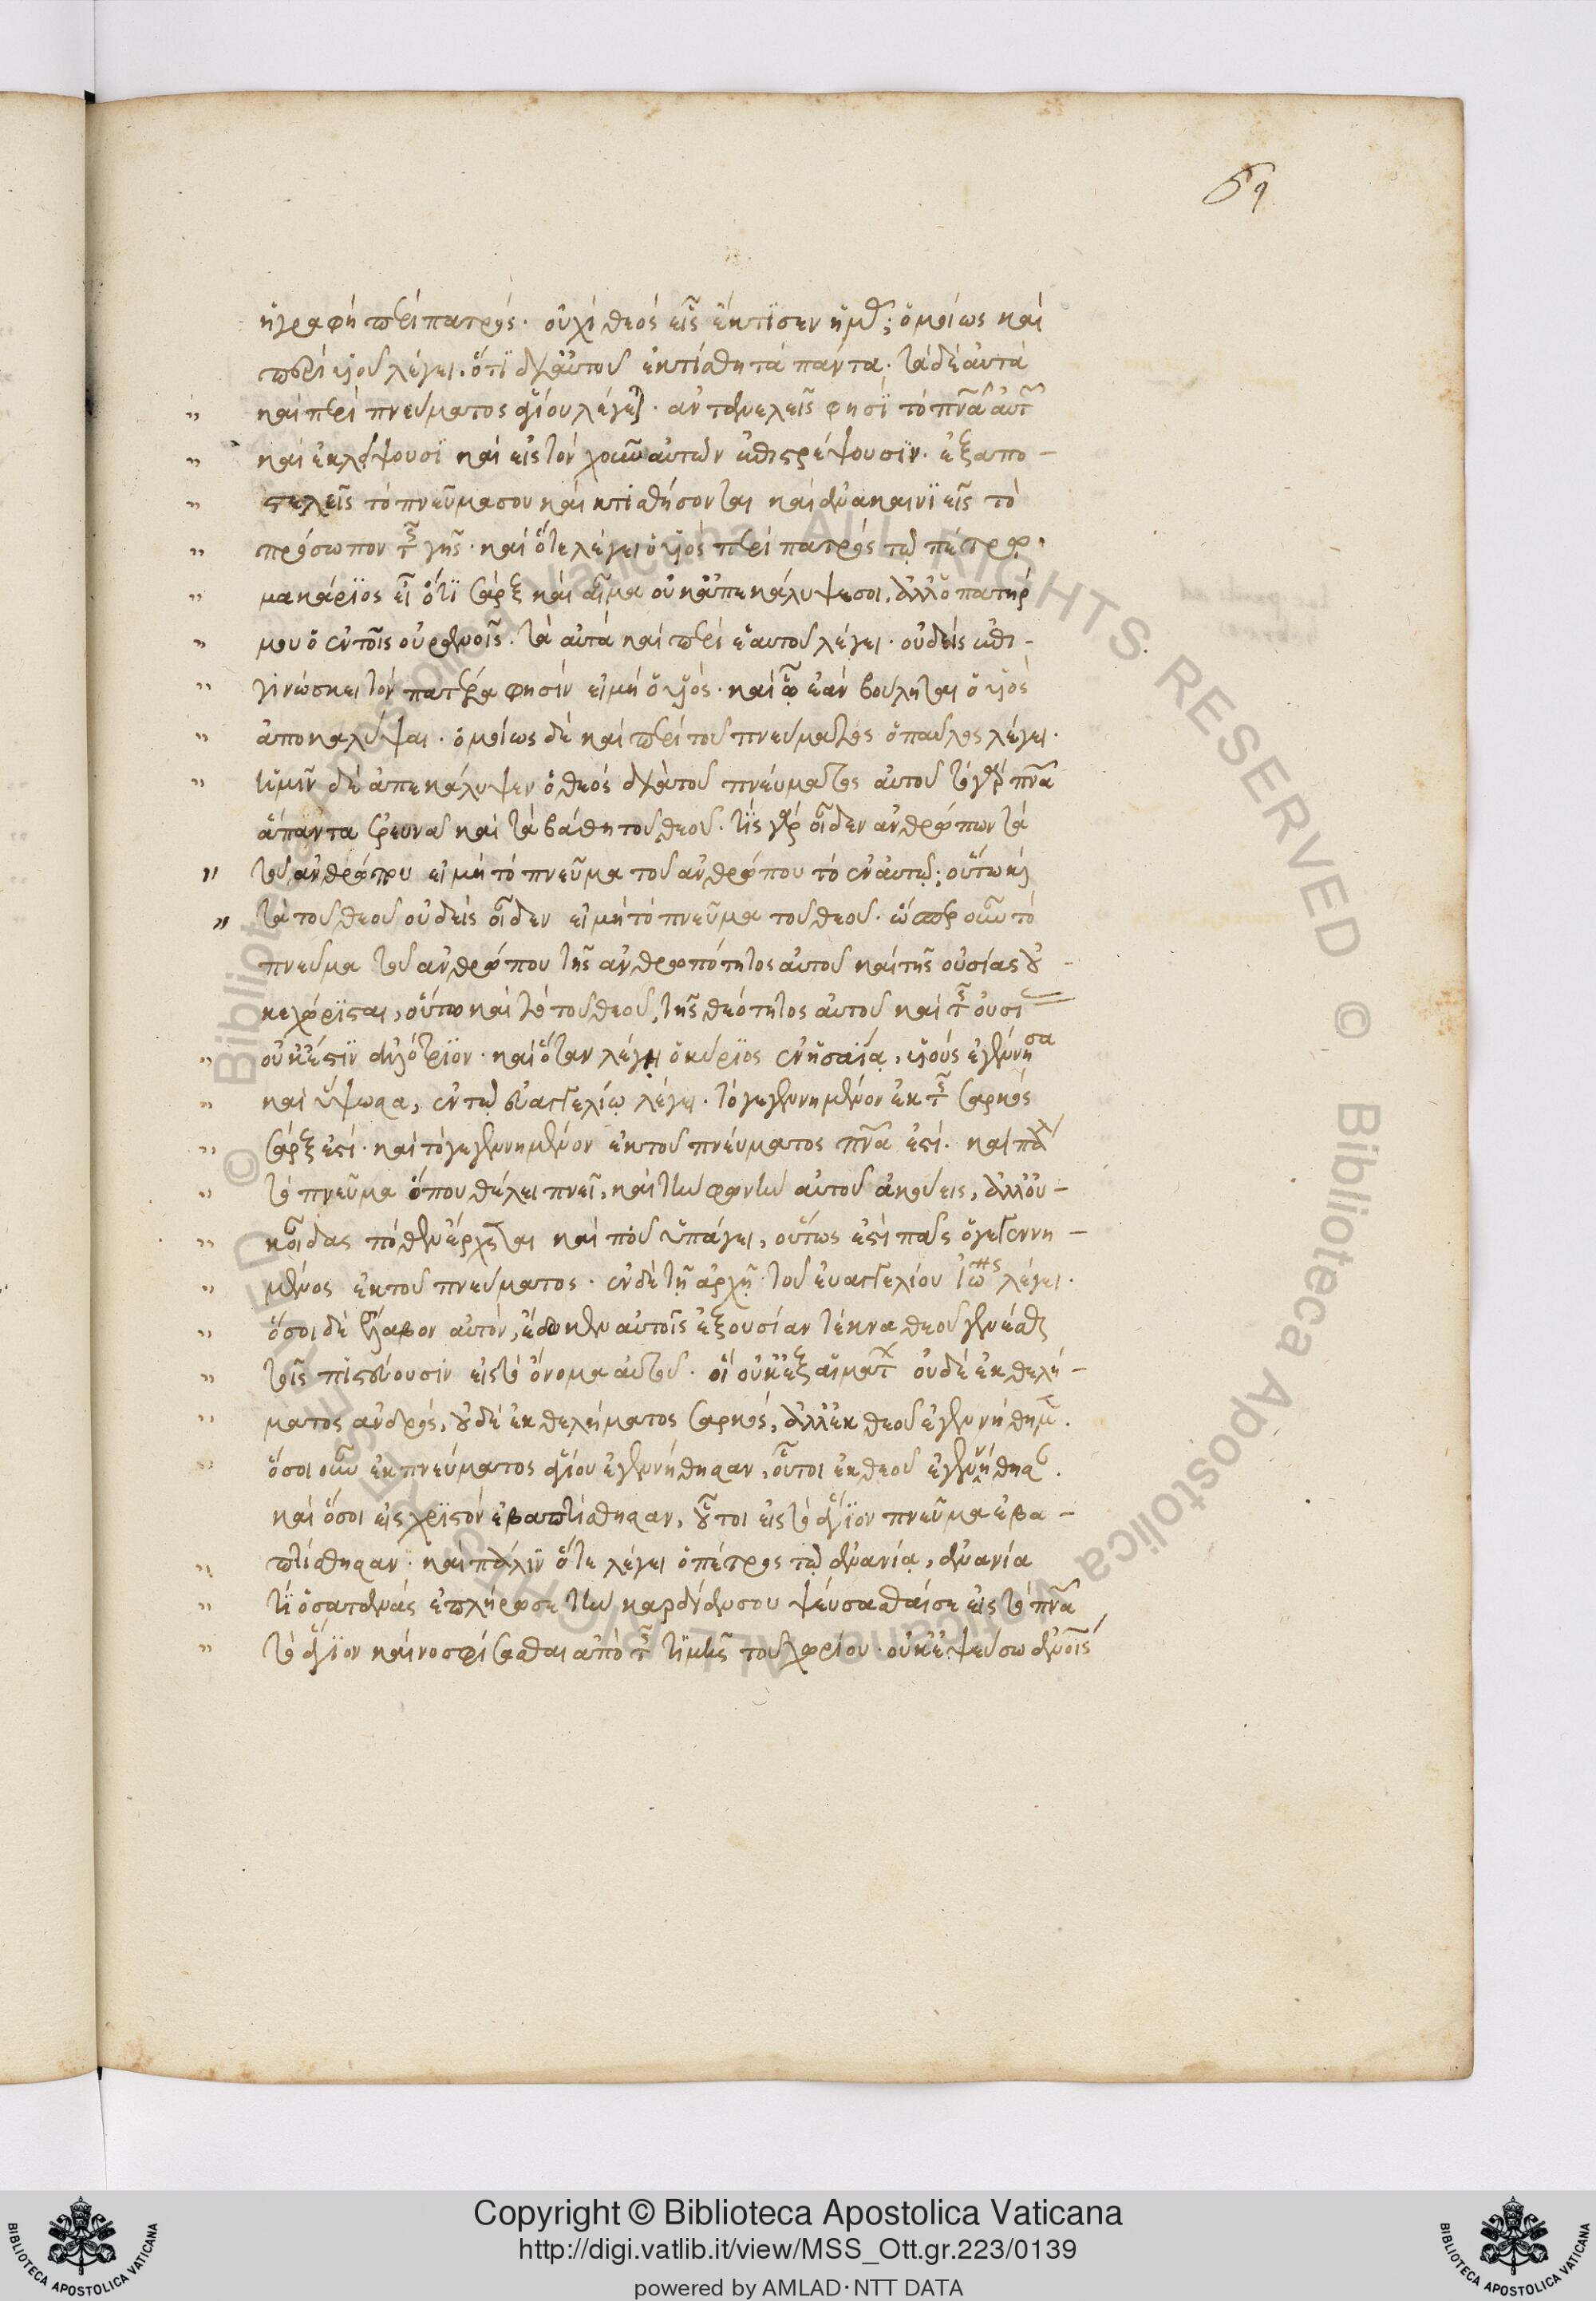 59
ἡ γραφὴ περὶ πατρός· οὐχὶ θεὸς εἷς ἔκτισεν ἡμᾶς; ὁμοίως καὶ
περὶ υἱοῦ λέγει. ὅτι δι' αὐτοῦ ἐκτίσθη τὰ πάντα. τὰ δὲ αὐτὰ
καὶ περὶ πνεύματος ἁγίου λέγει· ἀντανελεῖς φησὶ τὸ πνᾶ αὐτ
καὶ ἐκλείψουσι καὶ εἰς τὸν χοῦν αὐτῶν ἐπιστρέψουσιν. ἐξαπο-
στελεῖς τὸ πνεῦμα σου καὶ κτισθήσονται καὶ ἀνακαινιεῖς τὸ
πρόσωπον τῆς γῆς· καὶ ὅτε λέγει ὁ υἱὸς περὶ πατρὸς τῷ πέτρῳ·
μακάριος εἶ ὅτι σὰρξ καὶ αἷμα οὐκ ἀπεκάλυψε σοι, ἀλλ' ὁ πατήρ
μου ὁ ἐν τοῖς οὐρανοῖς. τὰ αὐτὰ καὶ περὶ ἑαυτοῦ λέγει· οὐδεὶς ἐπι-
γινώσκει τὸν πατέρα φησὶν εἰ μὴ ὁ υἱός· καὶ ᾧ ἐὰν βούληται ὁ υἱὸς
ἀποκαλύψαι. ὁμοίως δὲ καὶ περὶ τοῦ πνεύματος ὁ παῦλος λέγει·
ἡμῖν δὲ ἀπεκάλυψεν ὁ θεὸς διὰ τοῦ πνεύματος αὐτοῦ τὸ γὰρ πνᾶ
ἅπαντα ἐρευνᾶ καὶ τὰ βάθη τοῦ θεοῦ. τίς γὰρ οἶδεν ἀνθρώπων τὰ
τοῦ ἀνθρώπου εἰ μὴ τὸ πνεῦμα τοῦ ἀνθρώπου τὸ ἐν αὐτῷ; οὕτω καὶ
τὰ τοῦ θεοῦ οὐδεὶς οἶδεν εἰ μὴ τὸ πνεῦμα τοῦ θεοῦ. ὥσπερ οὖν τὸ
πνεῦμα τοῦ ἀνθρώπου τῆς ἀνθρωπότητος αὐτοῦ καὶ τῆς οὐσίας οὐ-
κεχώρισται, οὕτω καὶ τὸ τοῦ θεοῦ, τῆς θεότητος αὐτοῦ καὶ τῆς οὐσί
οὐκ ἔστιν ἀλλότριον· καὶ ὅταν λέγῃ ὁ κύριος ἐν ἠσαΐᾳ, υἱοὺς ἐγέννησα
καὶ ὕψωσα, ἐν τῷ εὐαγγελίῳ λέγει. τὸ γεγεννημένον ἐκ τῆς σαρκὸς
σάρξ ἐστί· καὶ τὸ γεγεννημένον ἐκ τοῦ πνεύματος πνᾶ ἐστί. καὶ πάλ
τὸ πνεῦμα ὅπου θέλει πνεῖ, καὶ τὴν φωνὴν αὐτοῦ ἀκούεις, ἀλλ' οὐ-
κ οἶδας πόθεν ἔρχεται καὶ ποῦ ὑπάγει, οὕτως ἐστὶ πᾶς ὁ γεγεννη-
μένος ἐκ τοῦ πνεύματος. ἐν δὲ τῇ ἀρχῇ τοῦ εὐαγγελίου ἰωης λέγει.
ὅσοι δὲ ἔλαβον αὐτόν, ἔδωκεν αὐτοῖς ἐξουσίαν τέκνα θεοῦ γενέσθαι
τοῖς πιστεύουσιν εἰς τὸ ὄνομα αὐτοῦ. οἳ οὐκ ἐξ αἱμάτ οὐδὲ ἐκ θελή-
ματος ἀνδρός, οὐδὲ ἐκ θελήματος σαρκός, ἀλλ' ἐκ θεοῦ ἐγεννήθησ.
ὅσοι οὖν ἐκ πνεύματος ἁγίου ἐγεννήθησαν, οὗτοι ἐκ θεοῦ ἐγεννήθησ.
καὶ ὅσοι εἰς χριστὸν ἐβαπτίσθησαν, οὗτοι εἰς τὸ ἅγιον πνεῦμα ἐβα-
πτίσθησαν. καὶ πάλιν ὅτε λέγει ὁ πέτρος τῷ ἀνανίᾳ, ἀνανία
τί ὁ σατανᾶς ἐπλήρωσε τὴν καρδίαν σου ψεύσασθαί σε εἰς τὸ πνᾶ
τὸ ἅγιον καὶ νοσφίσασθαι ἀπὸ τῆς τιμῆς τοῦ χωρίου. οὐκ ἐψεύσω ἀνοῖς
Copyright © Biblioteca Apostolica Vaticana
http://digi.vatlib.it/view/MSS_Ott.gr.223/0139
powered by AMLAD·NTT DATA